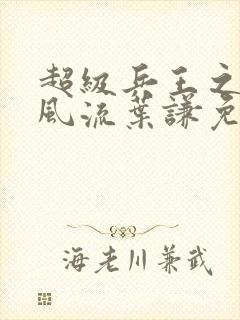 超级兵王之
风流葉謙免
海老川兼武